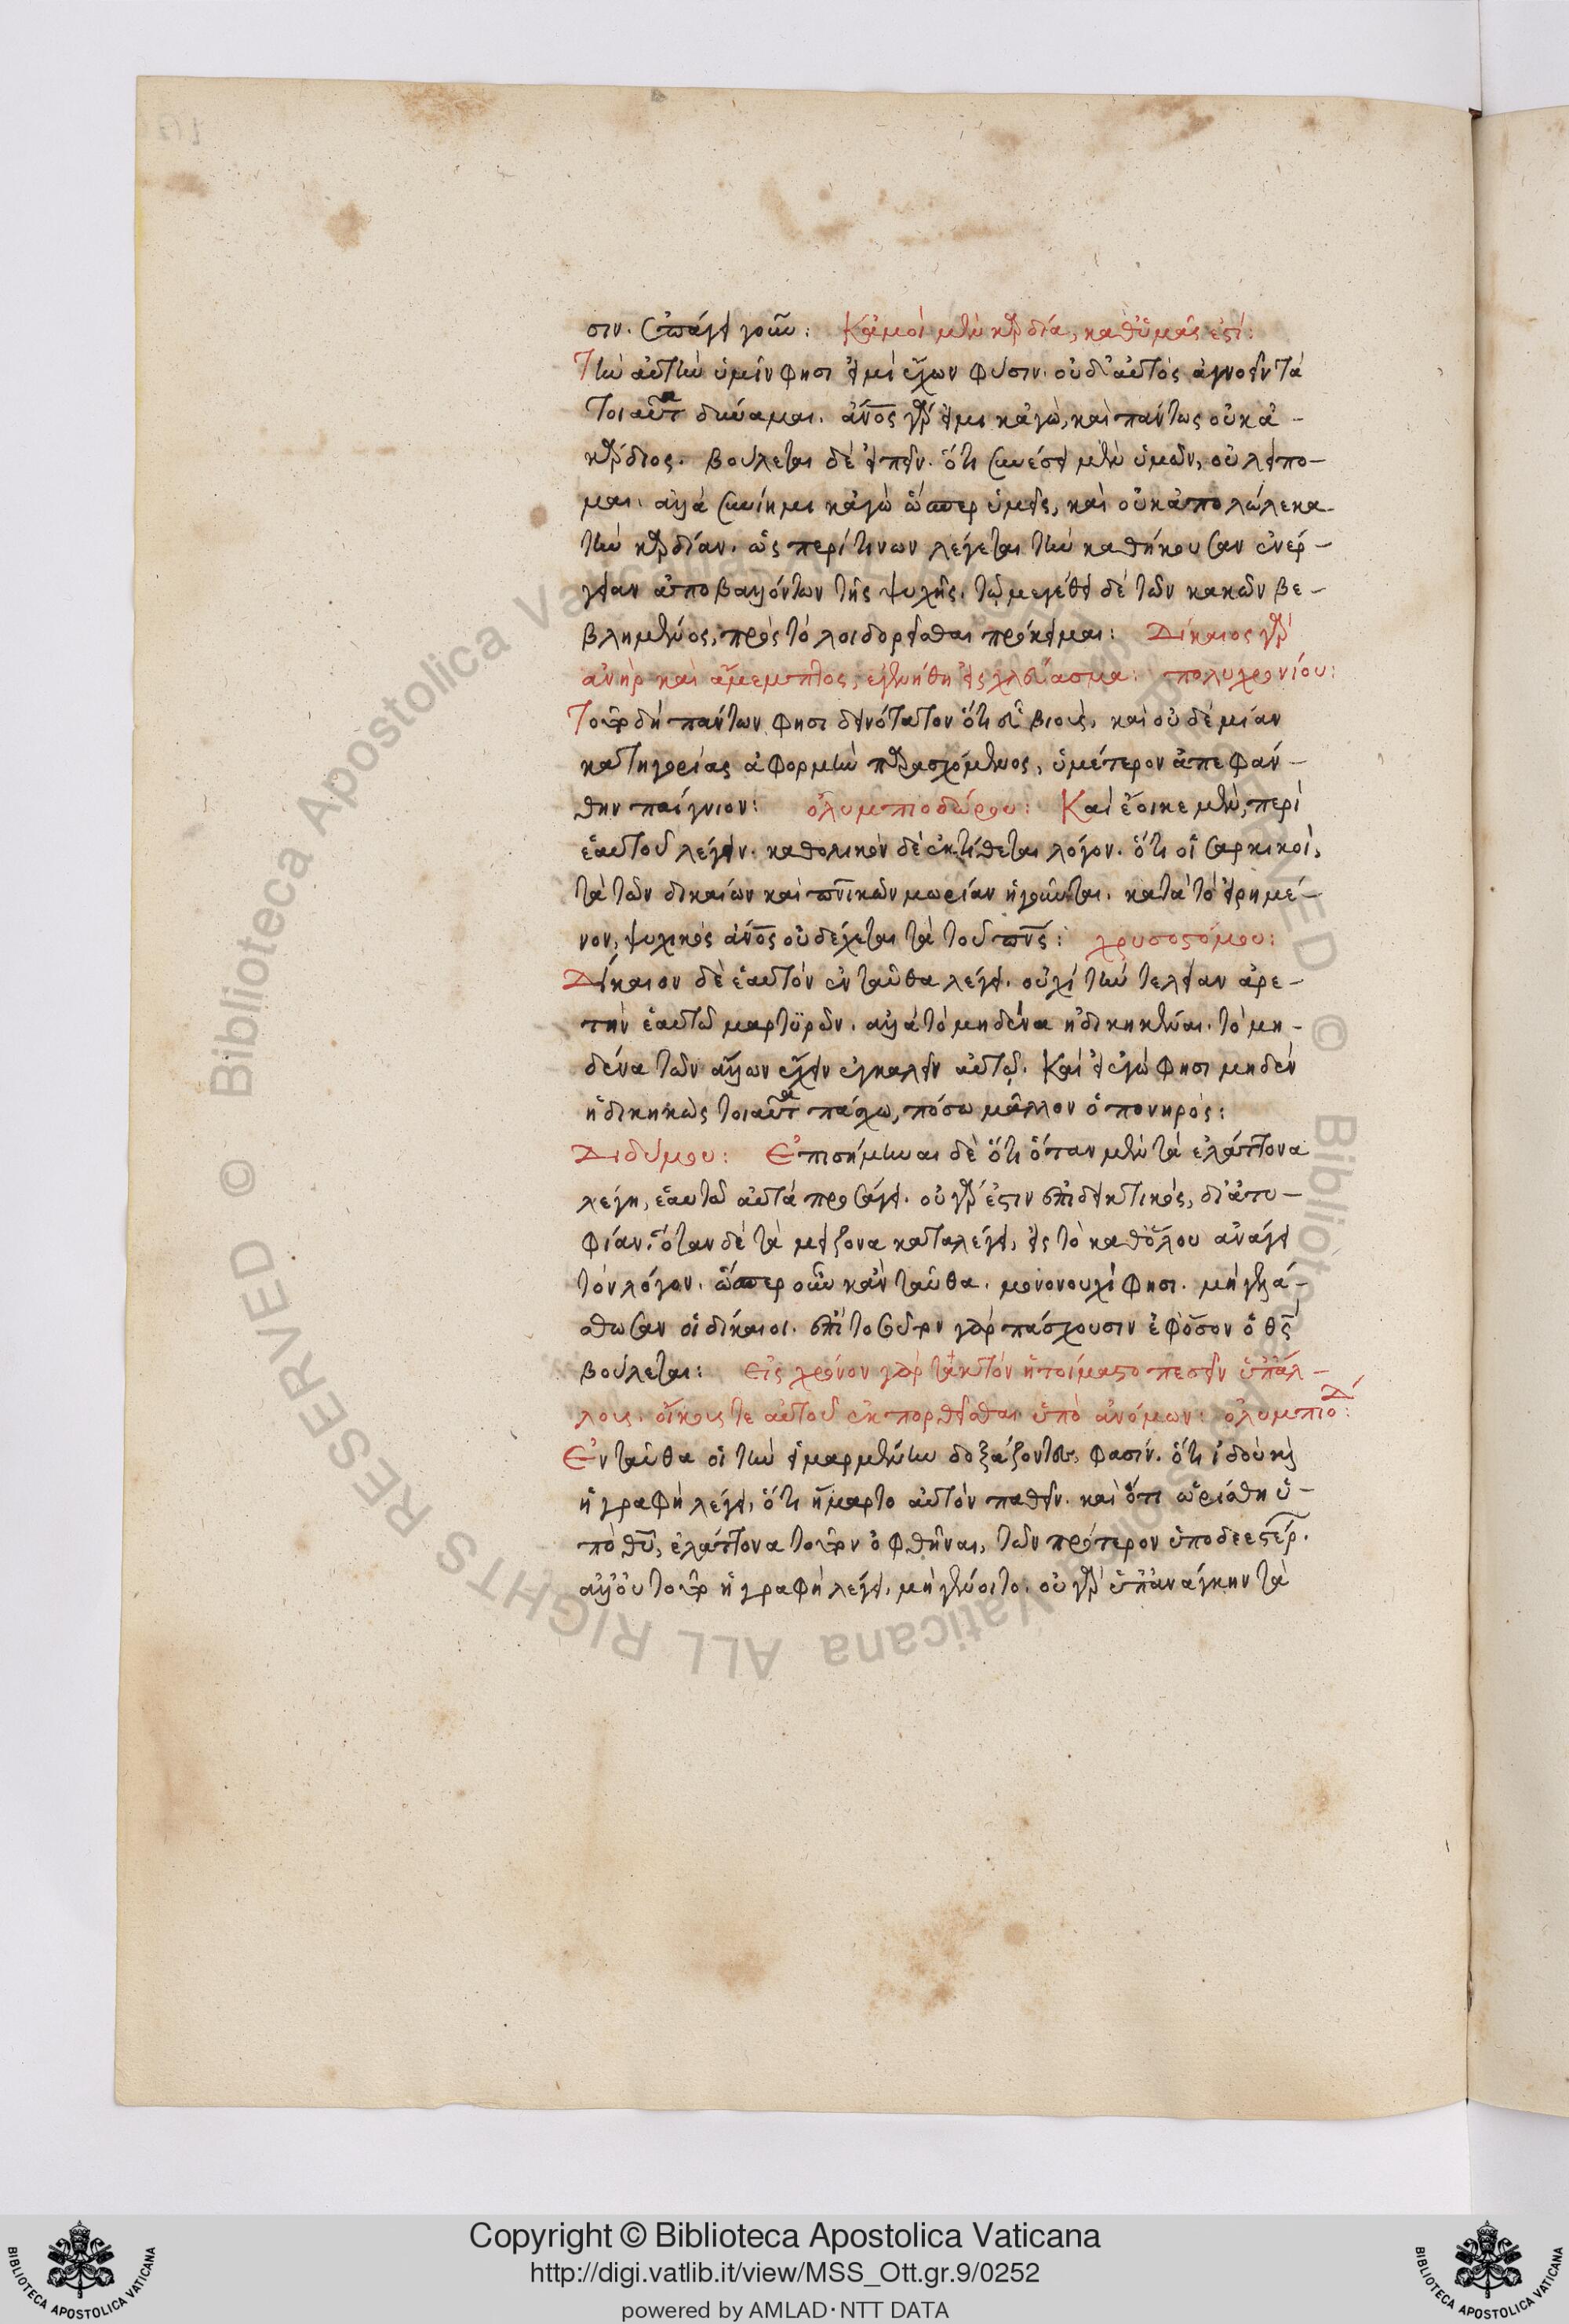 σιν. ἐπάγει γοῦν: Κἀμοὶ μὲν καρδία, καθ' ὑμᾶς ἐστί:
Τὴν αὐτὴν ὑμῖν φησι εἰμὶ ἔχων φύσιν. οὐδ' αὐτὸς ἀγνοεῖν τὰ
τοιαῦτα δύναμαι. ἄνος γάρ εἰμι κἀγὼ, καὶ πάντως οὐκ ἀ-
κάρδιος. βούλεται δὲ εἰπεῖν. ὅτι συνέσει μὲν ὑμῶν, οὐ λείπο-
μαι. ἀλλὰ συνίημι κἀγὼ ὥσπερ ὑμεῖς, καὶ οὐκ ἀπολώλεκα
τὴν καρδίαν. ὡς περί τινων λέγεται τὴν καθήκουσαν ἐνέρ-
γειαν ἀποβαλλόντων τῆς ψυχῆς. τῷ μεγέθει δὲ τῶν κακῶν βε-
βλημένος, πρὸς τὸ λοιδορεῖσθαι πρόκειμαι: Δίκαιος γὰρ
ἀνὴρ καὶ ἄμεμπτος, ἐγενήθη εἰς χλεύασμα: πολυχρονίου:
Τοῦτο δὴ πάντων φησι δεινότατον ὅτι εὖ βιοὺς, καὶ οὐδὲ μίαν
κατηγορίας ἀφορμὴν παρασχόμενος, ὑμέτερον ἀπεφάν-
θην παίγνιον: ὀλυμπιοδώρου: Καὶ ἔοικε μὲν, περὶ
ἑαυτοῦ λέγειν. καθολικὸν δὲ ἐκτίθεται λόγον. ὅτι οἱ σαρκικοὶ,
τὰ τῶν δικαίων καὶ πνικῶν μωρίαν ἡγοῦνται. κατὰ τὸ εἰρημέ-
νον, ψυχικὸς ἄνος οὐ δέχεται τὰ τοῦ πνς: χρυσοστόμου:
Δίκαιον δὲ ἑαυτὸν ἐνταῦθα λέγει. οὐχὶ τὴν τελείαν ἀρε-
τὴν ἑαυτῷ μαρτυρῶν. ἀλλὰ τὸ μηδένα ἠδικηκέναι. τὸ μη-
δένα τῶν ἄλλων ἔχειν ἐγκαλεῖν αὐτῷ. Καὶ εἰ ἐγώ φησι μηδὲν
ἠδικηκὼς τοιαῦτα πάσχω, πόσω μᾶλλον ὁ πονηρός:
Διδύμου: Ἐπισήμηναι δὲ ὅτι ὅταν μὲν τὰ ἐλάττονα
λέγη, ἑαυτῷ αὐτὰ προσάγει. οὐ γάρ ἐστιν ἐπιδεικτικὸς, δι' ἀτυ-
φίαν. ὅταν δὲ τὰ μείζονα καταλέγει, εἰς τὸ καθόλου ἀνάγει
τὸν λόγον. ὥσπερ οὖν κἀνταῦθα. μονονουχί φησι. μὴ γελά-
σθωσαν οἱ δίκαιοι. ἐπὶ τοσοῦτον γὰρ πάσχουσιν ἐφόσον ὁ θς
βούλεται: Εἰς χρόνον γὰρ τακτὸν ἡτοίμαστο πεσεῖν ὑπ' ἄλ-
λους. οἴκους τε αὐτοῦ ἐκπορθεῖσθαι ὑπὸ ἀνόμων: ὀλυμπιοδ:
Ἐνταῦθα οἱ τὴν εἱμαρμένην δοξάζοντες, φασίν. ὅτι ἰδοὺ καὶ
ἡ γραφὴ λέγει, ὅτι εἵμαρτο αὐτὸν παθεῖν. καὶ ὅτι ὡρίσθη ὑ-
πὸ θυ, ἐλάττονα τοῦτον ὀφθῆναι, τῶν πρότερον ὑποδεεστέρ.
ἀλλ' οὐ τοῦτο ἡ γραφὴ λέγει, μὴ γένοιτο. οὐ γὰρ ὑπ' ἀνάγκην τὰ
Copyright © Biblioteca Apostolica Vaticana
http://digi.vatlib.it/view/MSS_Ott.gr.9/0252
powered by AMLAD·NTT DATA
BIBLIOTECA APOSTOLICA VATICANA
BIBLIOTECA APOSTOLICA VATICANA